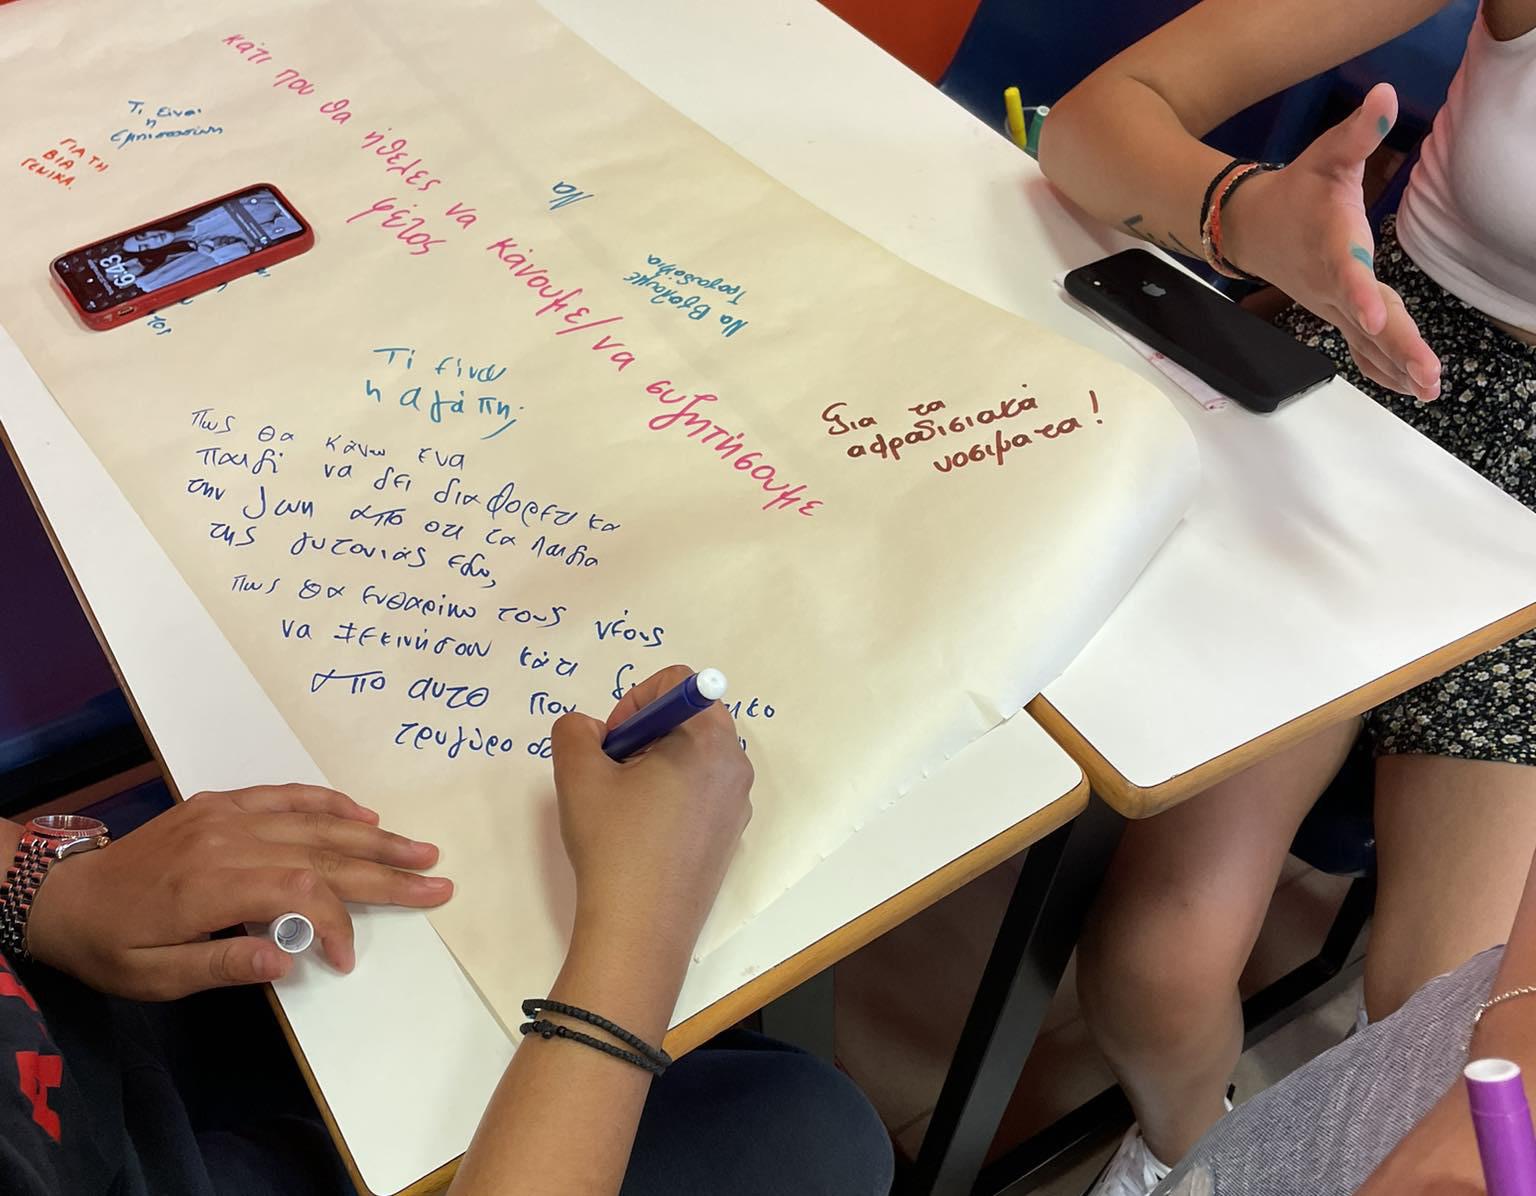 κάτι που θα ήθελες να κάνουμε/να συζητήσουμε
φέτος
Τι είναι
η
εμπιστοσύνη
ΓΙΑ ΤΗ
ΒΙΑ
ΓΕΝΙΚΑ.
6:43
Να
Να Βγάλουμε
Τραγούδια
Τί είναι
η αγάπη;
Για τα
αφραδισιακά
νοσίματα!
Πως θα κάνω ενα
παιδί να δει διαφορετικα
την ζωη απο οτι τα παιδια
της γυτονιάς εδω,
πως θα ενθαρίνω τους νέους
να ξεκινήσουν κάτι
απο αυτο που
τρυγύρο